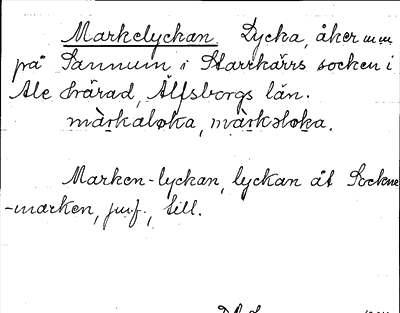 Markelyckan Lycka, åker m m
på Sannum i Starrkärrs socken i
Ale härad, Älfsborgs län.
màrkaloka, màrkəloka.
Marken-lyckan, lyckan åt Sockne
-marken, jmf., till.